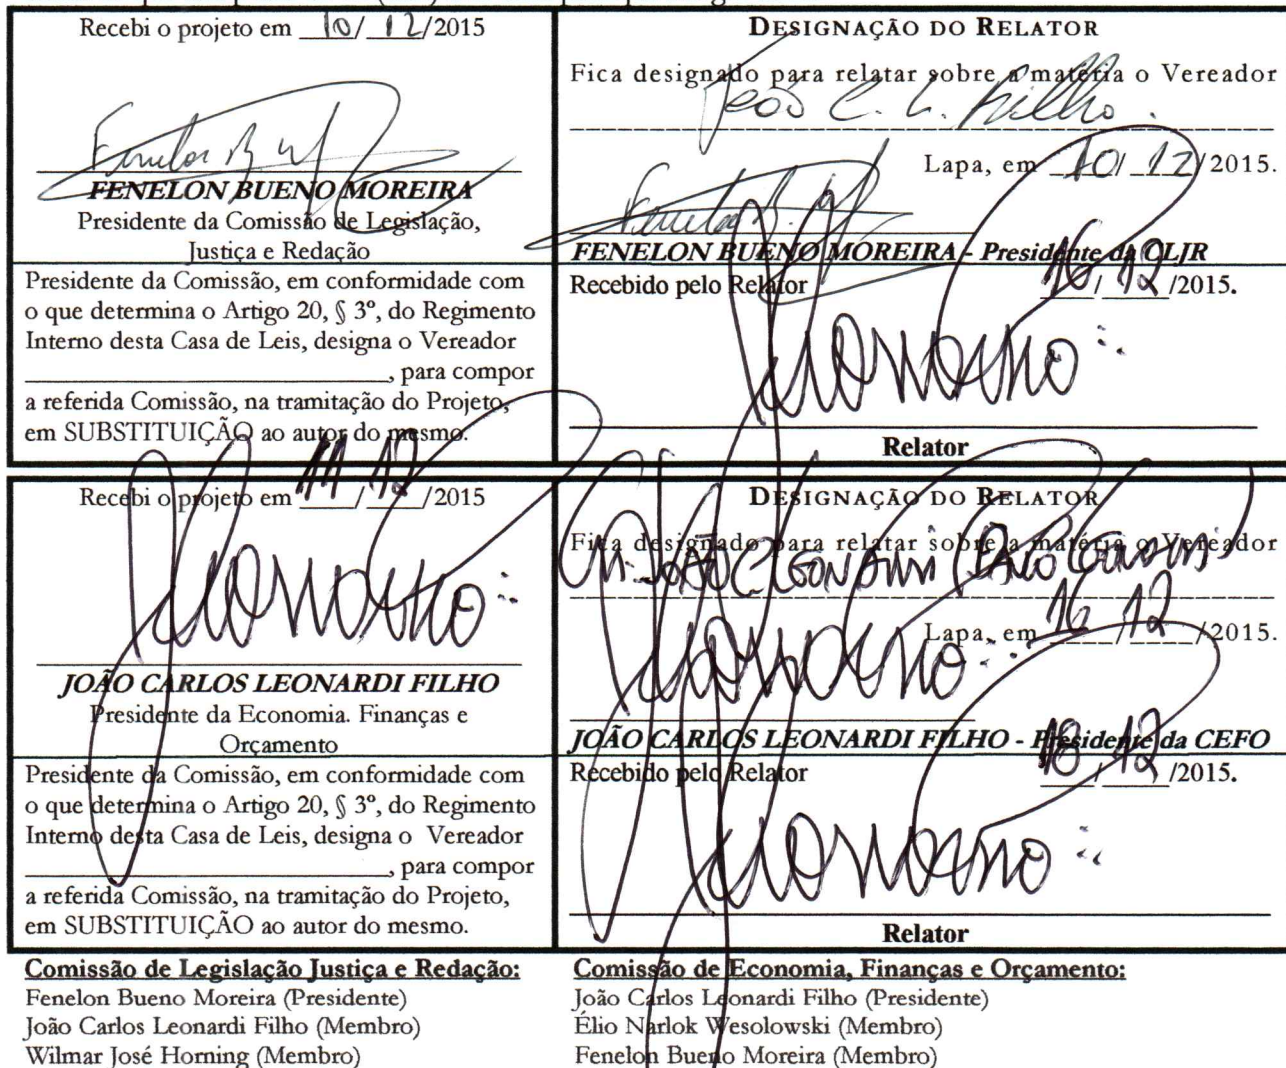 Recebi o projeto em 10/12/2015
FENELON BUENO MOREIRA
Presidente da Comissão de Legislação,
Justiça e Redação
DESIGNAÇÃO DO RELATOR
Fica designado para relatar sobre a matéria o Vereador
João C. L. Filho.
Lapa, em 10/12/2015.
FENELON BUENO MOREIRA - Presidente da CLJR
Presidente da Comissão, em conformidade com
o que determina o Artigo 20, § 3º, do Regimento
Interno desta Casa de Leis, designa o Vereador
____________________, para compor
a referida Comissão, na tramitação do Projeto,
em SUBSTITUIÇÃO ao autor do mesmo.
Recebido pelo Relator 16/12/2015.
Relator
Recebi o projeto em 11/12/2015
JOÃO CARLOS LEONARDI FILHO
Presidente da Economia. Finanças e
Orçamento
DESIGNAÇÃO DO RELATOR
Fica designado para relatar sobre a matéria o Vereador
JOÃO C LEONARDI
Lapa, em 16/12/2015.
JOÃO CARLOS LEONARDI FILHO - Presidente da CEFO
Presidente da Comissão, em conformidade com
o que determina o Artigo 20, § 3º, do Regimento
Interno desta Casa de Leis, designa o Vereador
____________________, para compor
a referida Comissão, na tramitação do Projeto,
em SUBSTITUIÇÃO ao autor do mesmo.
Recebido pelo Relator /12/2015.
Relator
Comissão de Legislação Justiça e Redação:
Fenelon Bueno Moreira (Presidente)
João Carlos Leonardi Filho (Membro)
Wilmar José Horning (Membro)
Comissão de Economia, Finanças e Orçamento:
João Carlos Leonardi Filho (Presidente)
Élio Narlok Wesolowski (Membro)
Fenelon Bueno Moreira (Membro)